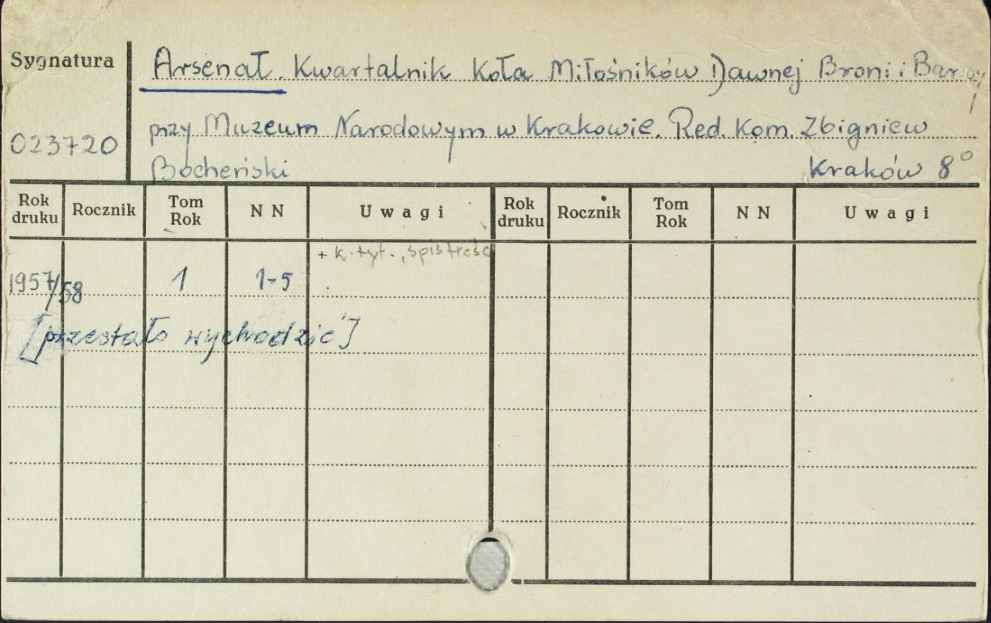 Sygnatura
Arsenał. Kwartalnik Koła Miłośników Dawnej Broni i
023720
przy Muzeum Narodowym w Krakowie. Red. Kom. Zbigniew
Bocheński Kraków 8°
Rok druku Rocznik Tom Rok N N Uwagi Rok druku Rocznik Tom Rok N N Uwagi
+ k. tyt.,
1957/58 1 1-5
[przestało wychodzić]